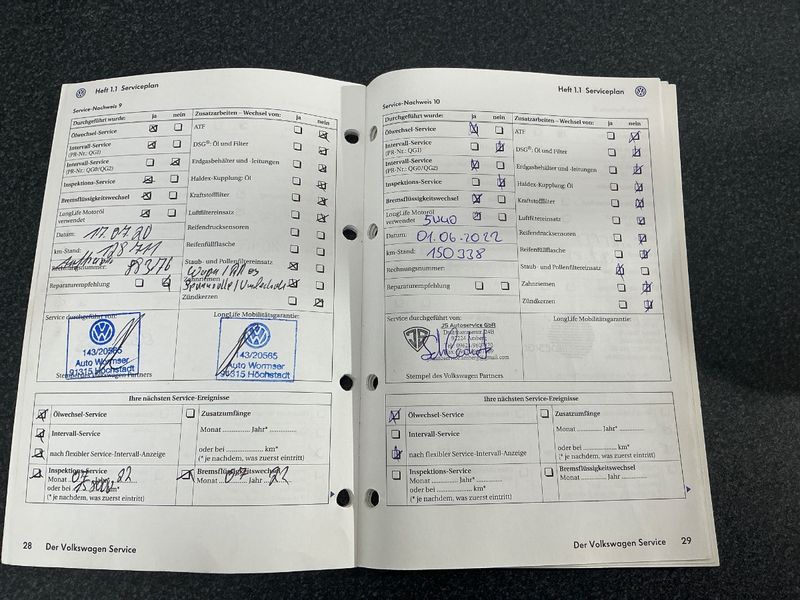 Heft 1.1 Serviceplan
Service-Nachweis 9
Durchgeführt wurde: ja nein
Ölwechsel-Service
Intervall-Service
(PR-Nr.: QG1)
Intervall-Service
(PR-Nr.: QG0/QG2)
Inspektions-Service
Bremsflüssigkeitswechsel
LongLife Motoröl
verwendet
Datum: 17.07.20
km-Stand:
Rechnungsnummer: 883176
Reparaturempfehlung
Zusatzarbeiten – Wechsel von: ja nein
ATF
DSG®: Öl und Filter
Erdgasbehälter und -leitungen
Haldex-Kupplung: Öl
Kraftstofffilter
Luftfiltereinsatz
Reifendrucksensoren
Reifenfüllflasche
Staub- und Pollenfiltereinsatz
Zahnriemen
Zündkerzen
Service durchgeführt von:
LongLife Mobilitätsgarantie:
143/20565
Auto Wormser
91315 Höchstadt
143/20565
Auto Wormser
91315 Höchstadt
Stempel des Volkswagen Partners
Ihre nächsten Service-Ereignisse
Ölwechsel-Service
Intervall-Service
nach flexibler Service-Intervall-Anzeige
Zusatzumfänge
Monat ............ Jahr* ............
oder bei ............ km*
(* je nachdem, was zuerst eintritt)
Inspektions-Service
Monat 07 Jahr* 22
oder bei
(* je nachdem, was zuerst eintritt)
Bremsflüssigkeitswechsel
Monat 07 Jahr 22
28 Der Volkswagen Service
Heft 1.1 Serviceplan
Service-Nachweis 10
Durchgeführt wurde: ja nein
Ölwechsel-Service
Intervall-Service
(PR-Nr.: QG1)
Intervall-Service
(PR-Nr.: QG0/QG2)
Inspektions-Service
Bremsflüssigkeitswechsel
LongLife Motoröl
verwendet
Datum: 01.06.2022
km-Stand: 150338
Rechnungsnummer:
Reparaturempfehlung
Zusatzarbeiten – Wechsel von: ja nein
ATF
DSG®: Öl und Filter
Erdgasbehälter und -leitungen
Haldex-Kupplung: Öl
Kraftstofffilter
Luftfiltereinsatz
Reifendrucksensoren
Reifenfüllflasche
Staub- und Pollenfiltereinsatz
Zahnriemen
Zündkerzen
Service durchgeführt von:
LongLife Mobilitätsgarantie:
JS Autoservice GbR
Stempel des Volkswagen Partners
Ihre nächsten Service-Ereignisse
Ölwechsel-Service
Intervall-Service
nach flexibler Service-Intervall-Anzeige
Zusatzumfänge
Monat ............ Jahr* ............
oder bei ............ km*
(* je nachdem, was zuerst eintritt)
Inspektions-Service
Monat ............ Jahr* ............
oder bei ............ km*
(* je nachdem, was zuerst eintritt)
Bremsflüssigkeitswechsel
Monat ............ Jahr ............
Der Volkswagen Service 29